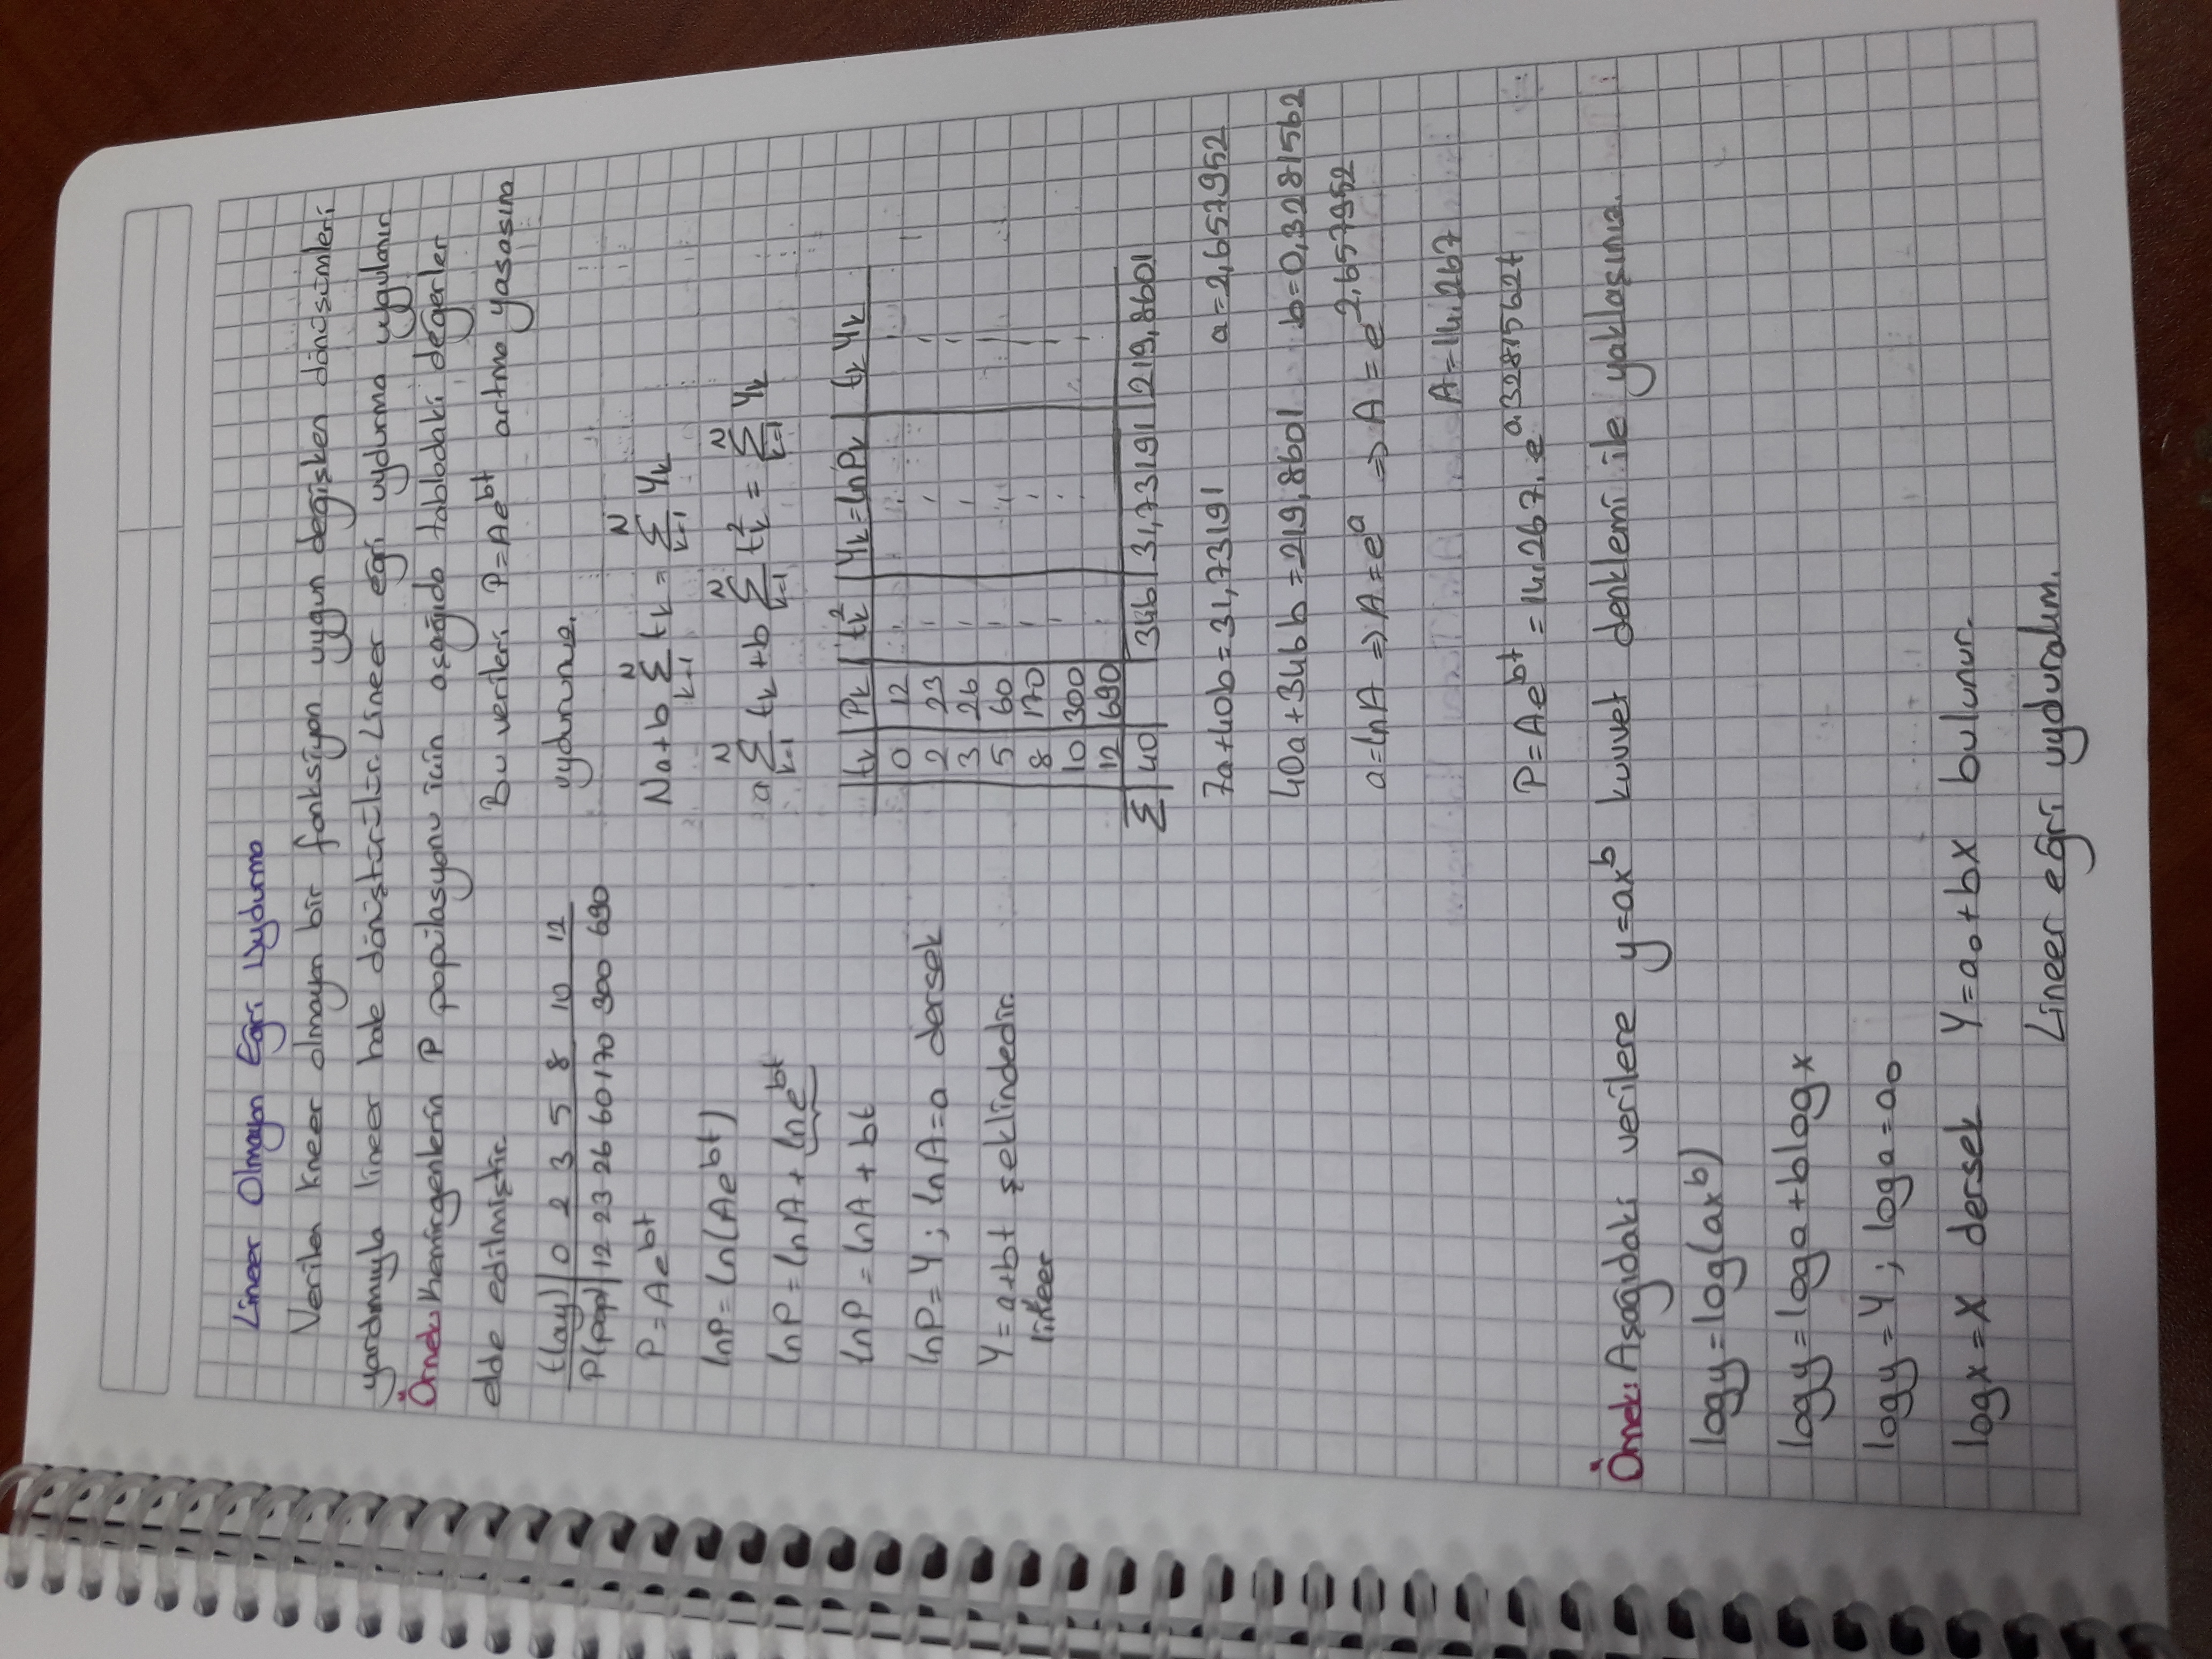 Lineer Olmayan Eğri Uydurma
Verilen lineer olmayan bir fonksiyon uygun değişken dönüşümleri
yardımıyla lineer hale dönüştürülür. Lineer eğri uydurma uygulanır.
Örnek: Kemirgenlerin P popülasyonu için aşağıda tablodaki değerler
elde edilmiştir.
Bu verileri P=Ae^bt artma yasasına
uydurunuz.
t(ay) 0 2 3 5 8 10 12
P(pop) 12 23 26 60 170 300 690
P=Ae^bt
lnP=ln(Ae^bt)
lnP=lnA+lne^bt
lnP=lnA+bt
lnP=Y; lnA=a dersek
Y=a+bt şeklindedir.
lineer
Na+b Σ_{k=1}^{N} tk = Σ_{k=1}^{N} Yk
a Σ_{k=1}^{N} tk + b Σ_{k=1}^{N} tk² = Σ_{k=1}^{N} Yk
tk | Pk | tk² | Yk=lnPk | tk Yk
0 | 12
2 | 23
3 | 26
5 | 60
8 | 170
10 | 300
12 | 690
Σ | 40 | | 346 | 31,73191 | 219,8601
7a+40b=31,73191 a=2,657952
40a+346b=219,8601 b=0,3281562
a=lnA ⇒ A=e^a ⇒ A=e^2,657952
A=14.267
P=Ae^bt=14.267.e^0.3281562t
Örnek: Aşağıdaki verilere y=ax^b kuvvet denklemi ile yaklaşınız.
logy=log(ax^b)
logy=loga+blogx
logy=Y; loga=a₀
logx=X dersek Y=a₀+bX bulunur.
Lineer eğri uyduralım.